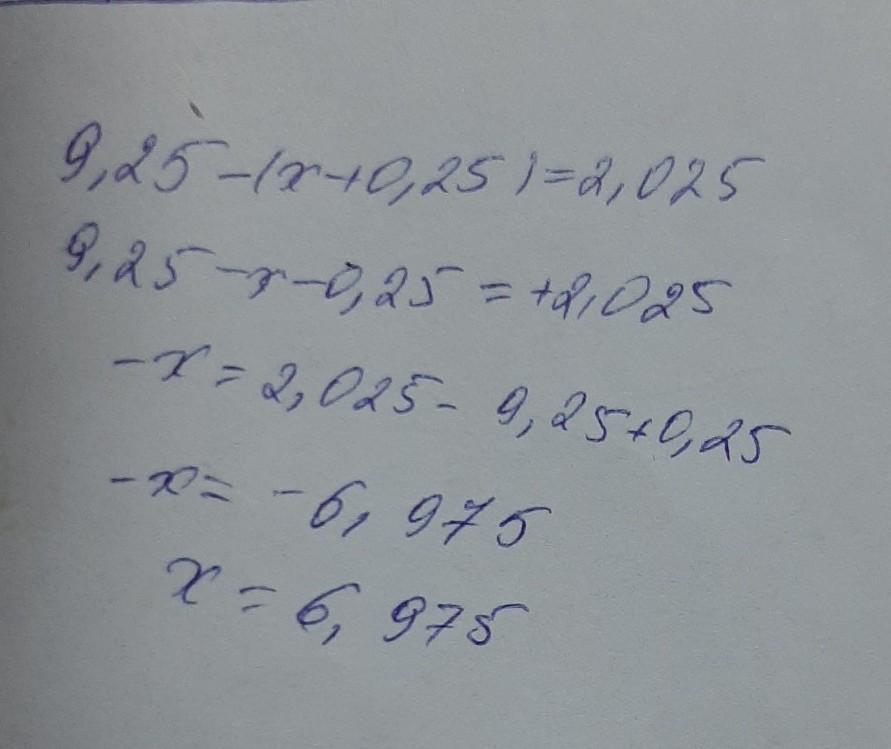 9,25-(x+0,25)=2,025
9,25-x-0,25=+2,025
-x=2,025-9,25+0,25
-x=-6,975
x=6,975